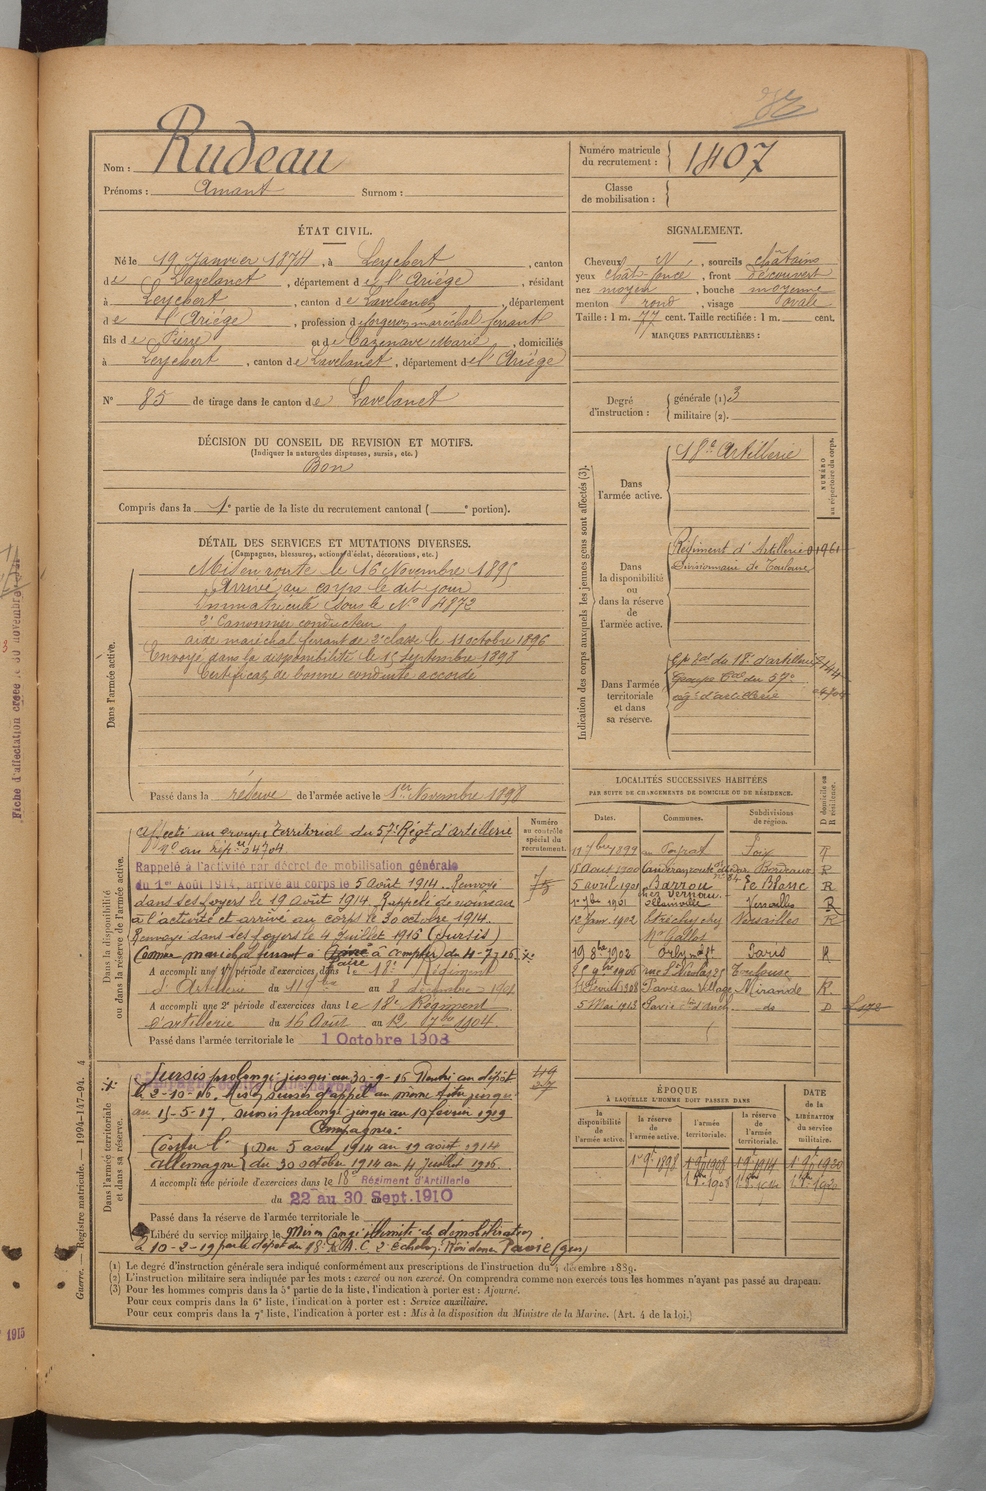 Nom : Rudeau
Prénoms : Amant Surnom :
Numéro matricule du recrutement : 1407
Classe de mobilisation :
ÉTAT CIVIL.
Né le 19 Janvier 1874, à Leychert, canton
de Lavelanet, département de l'Ariége, résidant
à Leychert, canton de Lavelanet, département
de l'Ariége, profession de forgeron maréchal ferrant
fils de Pierre et de Cazenave Marie, domiciliés
à Leychert, canton de Lavelanet, département de l'Ariége
N° 85 de tirage dans le canton de Lavelanet
SIGNALEMENT.
Cheveux N, sourcils châtains
yeux chât. foncé, front découvert
nez moyen, bouche moyenne
menton rond, visage ovale
Taille : 1 m. 77 cent. Taille rectifiée : 1 m. cent.
MARQUES PARTICULIÈRES :
Degré d'instruction : générale (1) 3
militaire (2).
DÉCISION DU CONSEIL DE REVISION ET MOTIFS.
(Indiquer la nature des dispenses, sursis, etc.)
Bon
Compris dans la 1e partie de la liste du recrutement cantonal ( e portion).
DÉTAIL DES SERVICES ET MUTATIONS DIVERSES.
(Campagnes, blessures, actions d'éclat, décorations, etc.)
Dans l'armée active.
Mis en route le 16 Novembre 1895
Arrivé au corps le dit jour
Immatriculé sous le N° 4872
2e Canonnier conducteur
aide maréchal ferrant de 2e classe le 11 octobre 1896
Envoyé dans la disponibilité le 15 Septembre 1898
Certificat de bonne conduite accordé
Passé dans la réserve de l'armée active le 1er Novembre 1898
Indication des corps auxquels les jeunes gens sont affectés (3).
NUMÉRO au répertoire du corps.
Dans l'armée active.
18e Artillerie
Dans la disponibilité ou dans la réserve de l'armée active.
Régiment d'Artillerie 01961
Divisionnaire de Toulouse
Dans l'armée territoriale et dans sa réserve.
Gpe Tal du 18e d'artillerie
Groupe Tal du 57e 04704
rég. d'artillerie
LOCALITÉS SUCCESSIVES HABITÉES
PAR SUITE DE CHANGEMENTS DE DOMICILE OU DE RÉSIDENCE.
Dates. Communes. Subdivisions de région. D domicile ou R résidence.
11 7bre 1899 Foix R
15 Aout 1900 Bordeaux R
5 avril 1901 Barrou Le Blanc R
1er 7bre 1901 chez Vernou Allainville Versailles R
12 Janv. 1902 Etréchy chez Mr Gallot Versailles R
19 8bre 1902 Paris R
9bre 1906 rue St Nicolas 25 Toulouse
Février 1908 Pavie au Village Mirande R.
5 Mai 1913 Pavie Rte d'Auch do D
Dans la disponibilité ou dans la réserve de l'armée active.
Numéro au contrôle spécial du recrutement.
Affecté au groupe territorial du 57e Régt d'artillerie
No au répre 04704
Rappelé à l'activité par décret de mobilisation générale
du 1er Août 1914, arrivé au corps le 5 Août 1914. Renvoyé
dans ses foyers le 19 août 1914. Rappelé de nouveau
à l'activité et arrivé au corps le 30 octobre 1914.
Renvoyé dans ses foyers le 4 Juillet 1915 (sursis)
Comme maréchal ferrant à Pavie à compter du 4-7-15
A accompli une 1re période d'exercices dans le 18e Régiment
d'Artillerie du 11 9bre au 8 décembre 1901
A accompli une 2e période d'exercices dans le 18e Régiment
d'artillerie du 16 Août au 12 7bre 1904.
Passé dans l'armée territoriale le 1 Octobre 1908
Dans l'armée territoriale et dans sa réserve.
Sursis prolongé jusqu'au 30-9-16 Rentré au dépôt
le 2-10-16. Mis en sursis d'appel au même titre jusqu'
au 15-5-17, sursis prolongé jusqu'au 10 février 1919
Campagnes :
Contre l'allemagne
Du 5 aout 1914 au 19 août 1914
du 30 octobre 1914 au 4 juillet 1915
A accompli une période d'exercices dans le 18e Régiment d'Artillerie
du 22 au 30 Sept. 1910
Passé dans la réserve de l'armée territoriale le
Libéré du service militaire le Mis en congé illimité de démobilisation
le 10-2-19 par le dépôt du 18e R.A.C. 2e échelon. Résidence Pavie (gers)
ÉPOQUE
À LAQUELLE L'HOMME DOIT PASSER DANS
la disponibilité de l'armée active. la réserve de l'armée active. l'armée territoriale. la réserve de l'armée territoriale. DATE de la LIBÉRATION du service militaire.
1er 9e 1898 1er 9e 1908 1er 9e 1914 1er 9e 1920
1er 8bre 1908 1er 8bre 1914 1er 8bre 1920
(1) Le degré d'instruction générale sera indiqué conformément aux prescriptions de l'instruction du 4 décembre 1889.
(2) L'instruction militaire sera indiquée par les mots : exercé ou non exercé. On comprendra comme non exercés tous les hommes n'ayant pas passé au drapeau.
(3) Pour les hommes compris dans la 5e partie de la liste, l'indication à porter est : Ajourné.
Pour ceux compris dans la 6e liste, l'indication à porter est : Service auxiliaire.
Pour ceux compris dans la 7e liste, l'indication à porter est : Mis à la disposition du Ministre de la Marine. (Art. 4 de la loi.)
Guerre. — Registre matricule. — 1994-147-94. 4
Fiche d'affectation créée le 30 novembre
1915